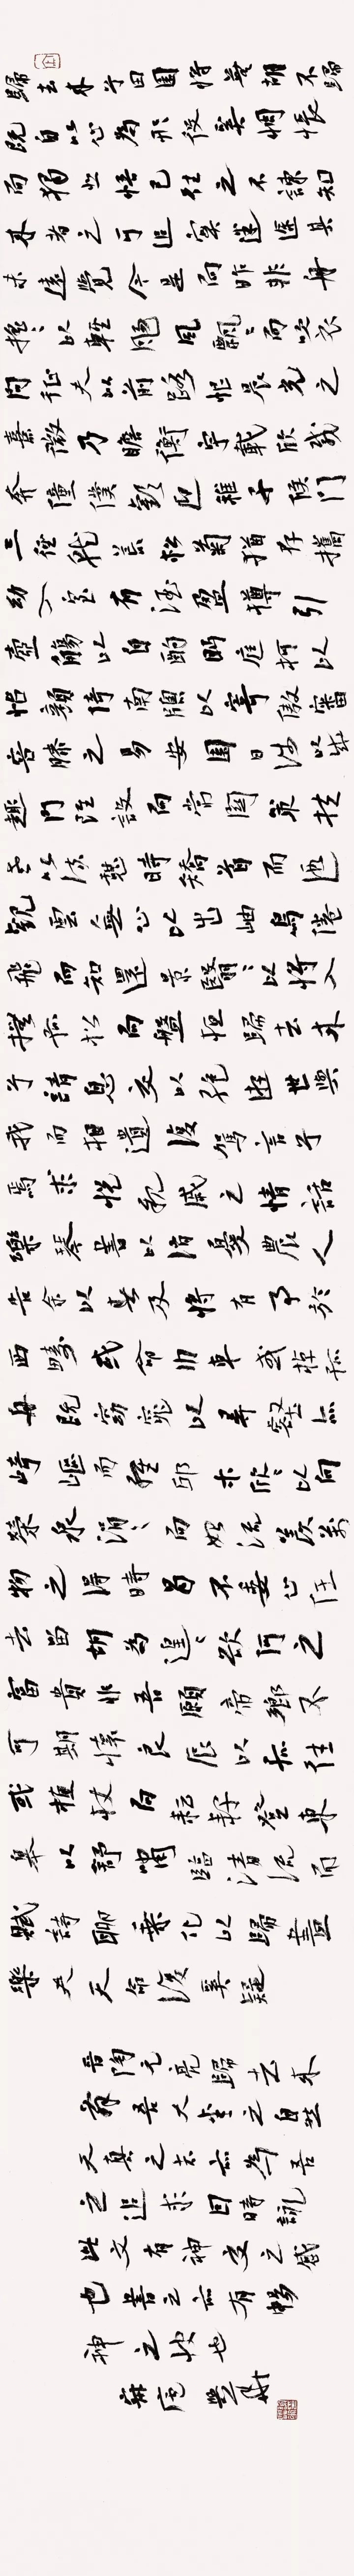 歸去來兮田園將蕪胡不歸
既自以心為形役奚惆悵
而獨悲悟已往之不諫知
來者之可追寔迷途其
未遠覺今是而昨非舟
搖〻以輕颺風飄〻而吹衣
問征夫以前路恨晨光之
熹微乃瞻衡宇載欣載
奔僮僕歡迎稚子候門
三徑就荒松菊猶存攜
幼入室有酒盈樽引
壺觴以自酌眄庭柯以
怡顏倚南牕以寄傲審
容膝之易安園日涉以成
趣門雖設而常關策扶
老以流憩時矯首而遐
觀雲無心以出岫鳥倦
飛而知還景翳〻以將入
撫孤松而盤桓歸去來
兮請息交以絕遊世與
我而相遺復駕言兮
焉求悅親戚之情話
樂琴書以消憂農人
告余以春及將有事於
西疇或命巾車或棹孤
舟既窈窕以尋壑亦
崎嶇而經邱木欣〻以向
榮泉涓〻而始流羨萬
物之得時曷不委心任
去留胡為遑〻欲何之
富貴非吾願帝鄉不
可期懷良辰以孤往
或植杖而耘耔登東
皋以舒嘯臨清流而
賦詩聊乘化以歸盡
樂夫天命復奚疑
晉陶元亮歸去來
辭吾人之自然
天真之亦為吾
之追求時詠
此文有神交之感
也書之亦有暢
神之快也